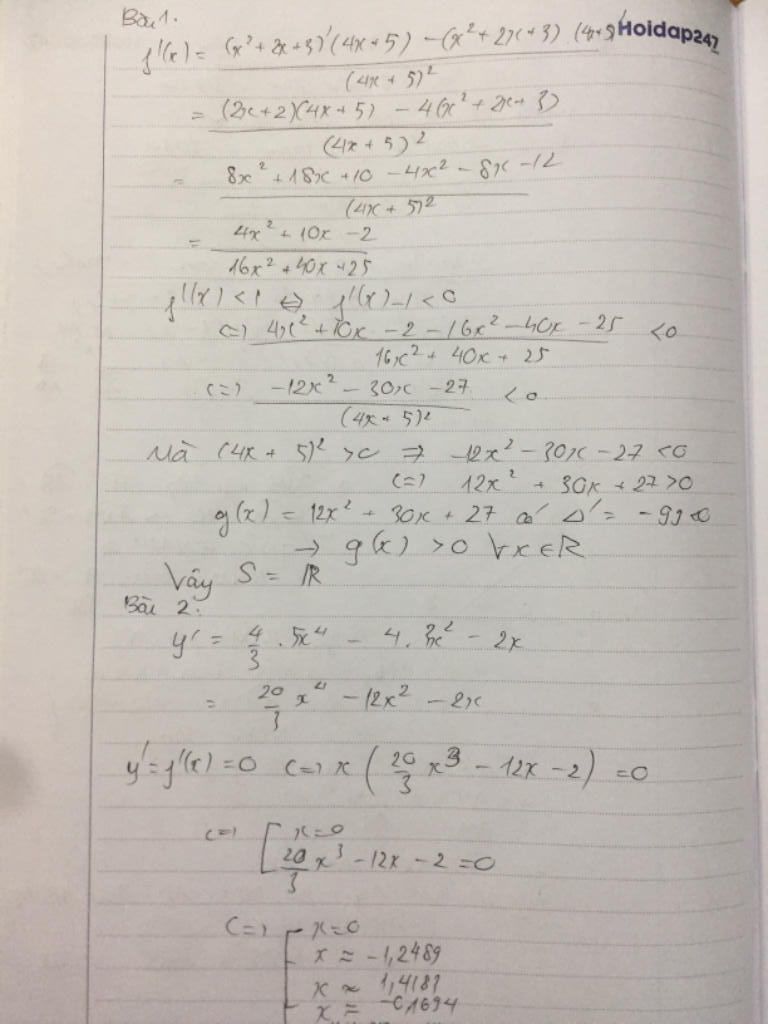 Bài 1.
Hoidap247
f'(x) = ((x² + 2x + 3)'(4x + 5) - (x² + 2x + 3) (4x+5)')/(4x + 5)²
= ((2x + 2)(4x + 5) - 4(x² + 2x + 3))/(4x + 5)²
= (8x² + 18x + 10 - 4x² - 8x - 12)/(4x + 5)²
= (4x² + 10x - 2)/(16x² + 40x + 25)
f'(x) < 1 <=> f'(x) - 1 < 0
<=> (4x² + 10x - 2 - 16x² - 40x - 25)/(16x² + 40x + 25) < 0
<=> (-12x² - 30x - 27)/(4x + 5)² < 0
Mà (4x + 5)² > 0 => -12x² - 30x - 27 < 0
<=> 12x² + 30x + 27 > 0
g(x) = 12x² + 30x + 27 có Δ' = -99 < 0
→ g(x) > 0 ∀x ∈ R
Vậy S = R
Bài 2:
y' = 4/3 . 5x⁴ - 4 . 3x² - 2x
= 20/3 x⁴ - 12x² - 2x
y' = f'(x) = 0 <=> x (20/3 x³ - 12x - 2) = 0
<=> [ x = 0
20/3 x³ - 12x - 2 = 0
<=> [ x = 0
x ≈ -1,2489
x ≈ 1,4183
x ≈ -0,1694